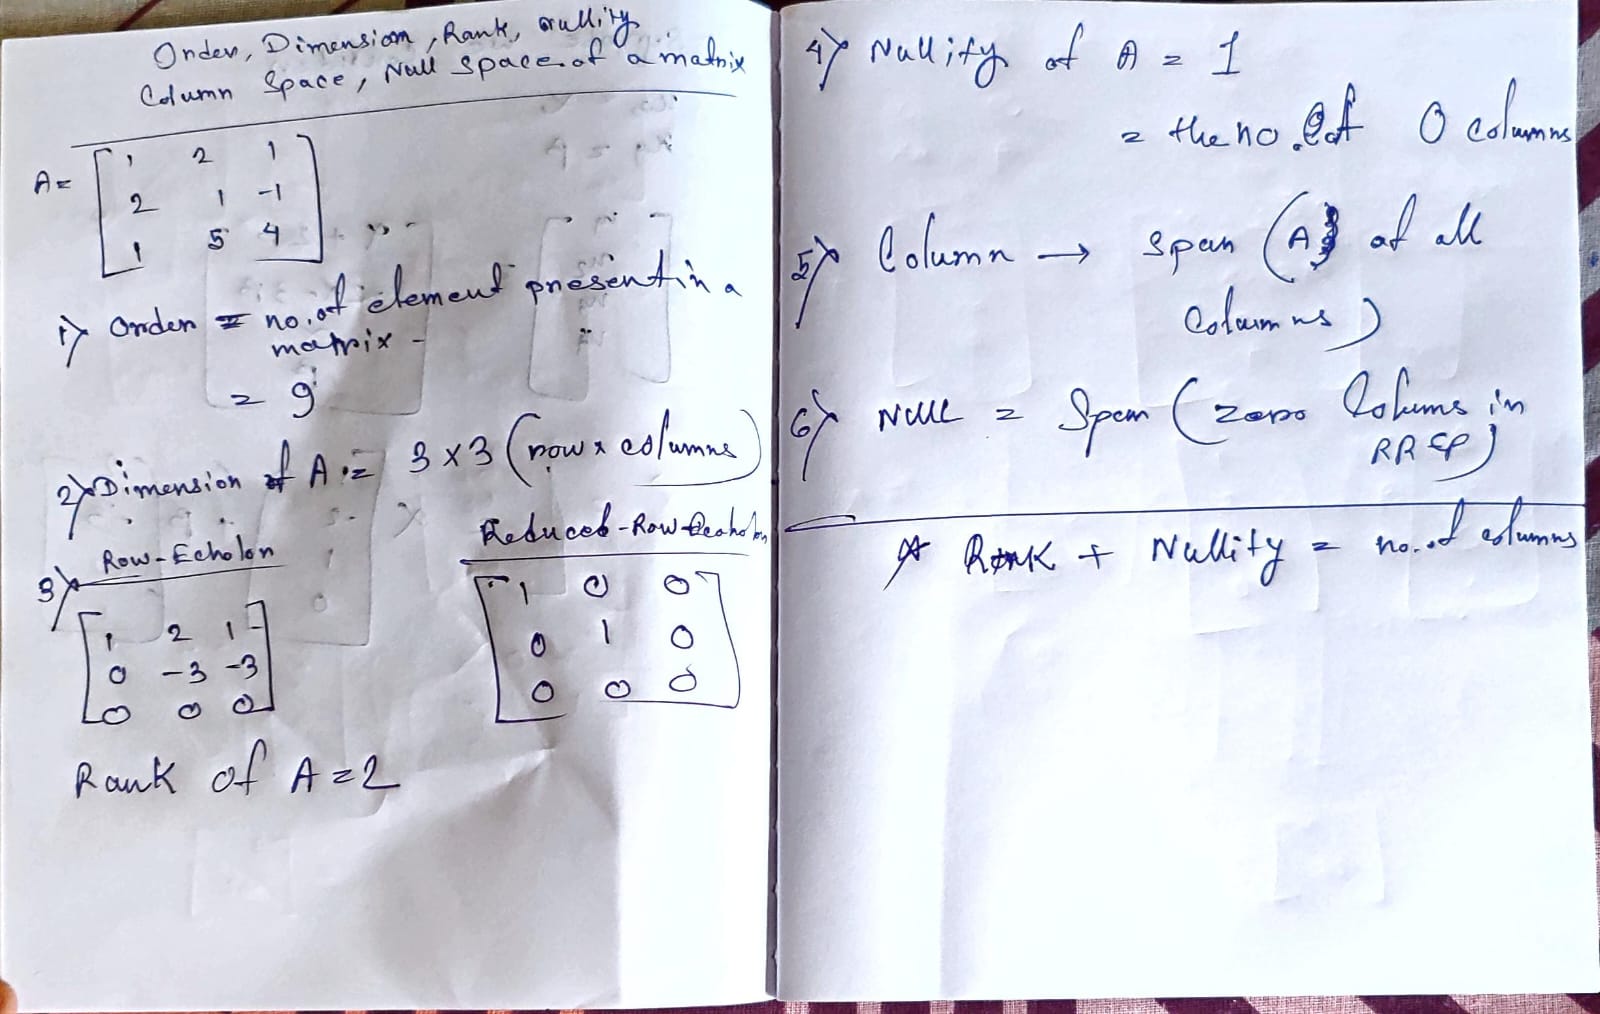 Order, Dimension, Rank, nullity
Column Space, Null space of a matrix
A = [ 1 2 1
2 1 -1
1 5 4 ]
1) Order = no. of element present in a
matrix -
= 9
2) Dimension of A = 3 x 3 (row x columns)
3) Row-Echolon
[ 1 2 1
0 -3 -3
0 0 0 ]
Reduced-Row-Echolon
[ 1 0 0
0 1 0
0 0 0 ]
Rank of A = 2
4) Nullity of A = 1
= the no. of 0 columns
5) Column → Span (A of all
Columns)
6) Null = Span (zero Colums in
RREF)
* Rank + Nullity = no. of columns